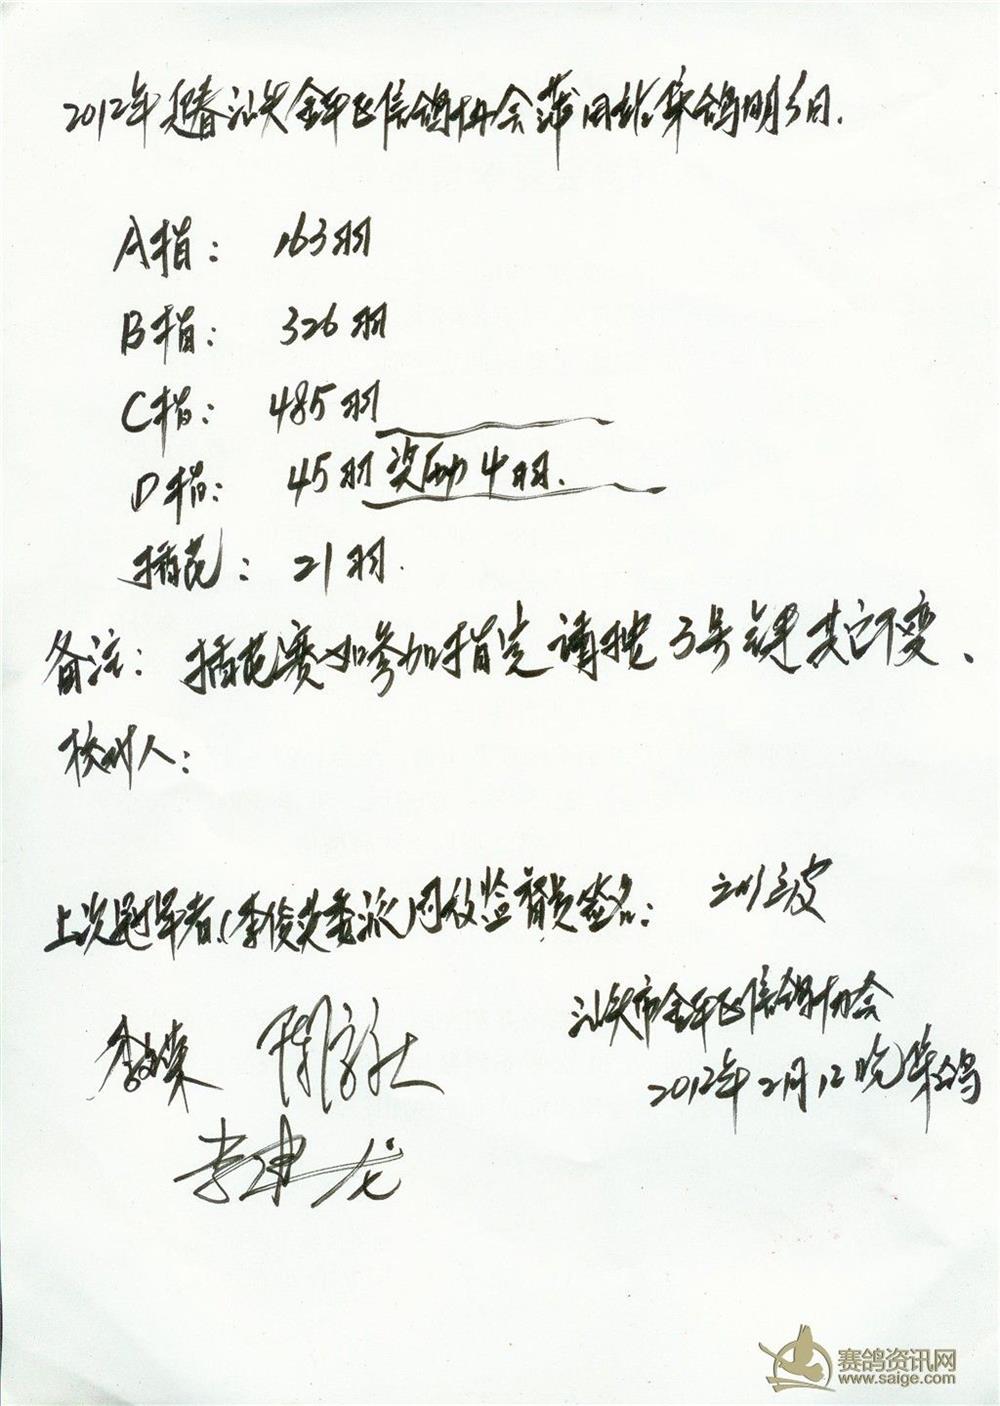 2012年迎春汕头金平区信鸽协会莆田站集鸽明细.
A指: 163羽
B指: 326羽
C指: 485羽
D指: 45羽 奖励4羽.
插花: 21羽.
备注: 插花赛如参加指定请按3号 其它不变、
校对人:
上次冠军者(李俊英委派)司放监督员签名:
汕头市金平区信鸽协会
2012年2月12晚集鸽
李建龙
赛鸽资讯网
www.saige.com